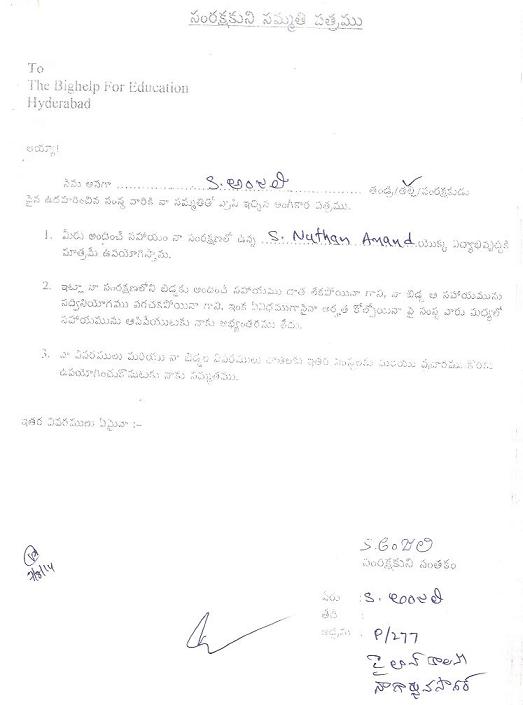 సంరక్షకుని సమ్మతి పత్రము
To
The Bighelp For Education
Hyderabad
అయ్యా!
నేను అనగా ........ S. అంజలి ........ తండ్రి/తల్లి/సంరక్షకుడు
పైన ఉదహరించిన సంస్థ వారికి నా సమ్మతితో వ్రాసి ఇచ్చిన అంగీకార పత్రము.
1. మీరు అందించే సహాయం నా సంరక్షణలో ఉన్న S. Nathan Anand యొక్క విద్యాభివృద్ధికి
మాత్రమే ఉపయోగిస్తాము.
2. ఇట్లా నా సంరక్షణలోని బిడ్డకు అందించే సహాయము దాత లేకపోయినా గాని, నా బిడ్డ ఆ సహాయమును
సద్వినియోగము పరచకపోయినా గాని, ఇంక ఏవిధముగానైనా అర్హత కోల్పోయినా పై సంస్థ వారు మధ్యలో
సహాయమును ఆపివేయుటకు నాకు అభ్యంతరము లేదు.
3. నా వివరములు మరియు నా బిడ్డల వివరములు దాతలకు ఇతర సంస్థలకు మరియు ప్రచారము కొరకు
ఉపయోగించుకొనుటకు నాకు సమ్మతము.
ఇతర వివరములు ఏమైనా :-
S. అంజలి
సంరక్షకుని సంతకం
7/8/14
పేరు : S. అంజలి
తేది :
అడ్రసు : P/277
పైలాన్ కాలని
నాగార్జునసాగర్